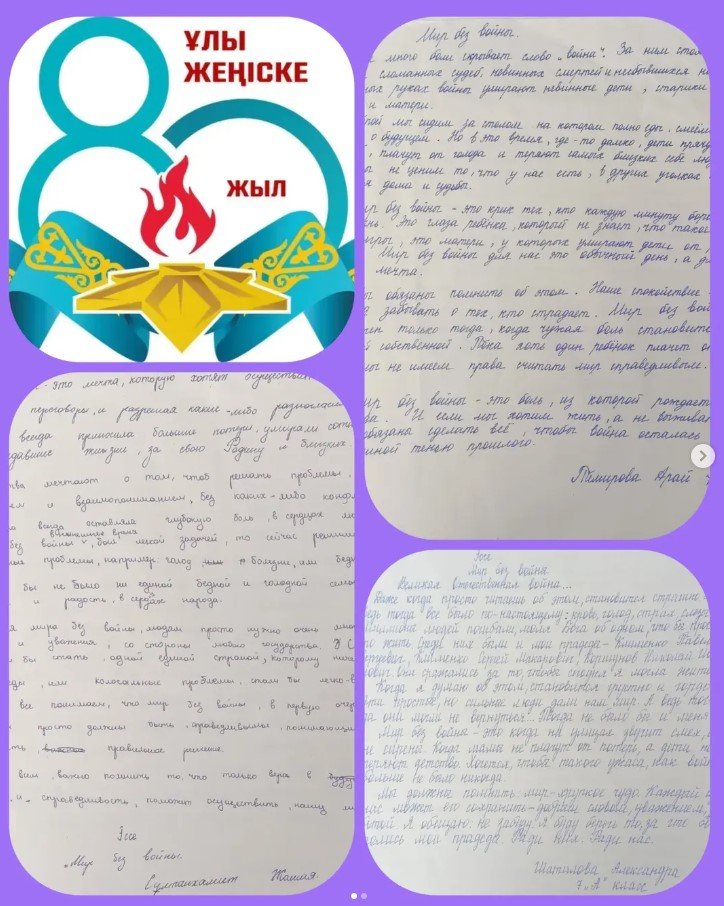 ҰЛЫ
ЖЕҢІСКЕ
80
ЖЫЛ
Мир без войны.
много боли скрывает слово „война“. За ним стоя
сломанных судеб, невинных смертей и несбывшихся на
ных руках войны умирают невинные дети, старики
и матери.
рой мы сидим за столом на котором полно еды, смеём
о будущем. Но в это время, где-то далеко, дети пряч
, плачут от голода и теряют самых близких себе лю
ы не ценим то, что у нас есть, в других уголках
я дома и судьбы.
ир без войны - это крик тех, кто каждую минуту боро
ень. Это глаза ребёнка, который не знает, что такое
это матери, у которых умирают дети от
Мир без войны для нас это обычный день, а дл
мечта.
ы обязаны помнить об этом. Наше спокойствие -
а забывать о тех, кто страдает. Мир без вой
ен только тогда, когда чужая боль становится
й собственной. Пока хоть один ребёнок плачет от
ы не имеем права считать мир справедливым.
ир без войны - это боль, из которой рождает
да. И если мы хотим жить, а не выживат
обязана сделать всё, чтобы война осталась
иной тенью прошлого.
Темирова Арай
- это мечта, которую хотят осуществит
переговоры, и разрешая какие-либо разногласи
всегда приносила большие потери, умирали сотн
давшие жизни, за свою Родину и близких
ства мечтают о том, чтоб решать проблемы,
ем и взаимопониманием, без каких-либо конфл
на всегда оставляла глубокую боль, в сердцах лю
нынешнее время
без войны, был легкой задачей, то сейчас решили
ные проблемы, например голод, болезни, или бедн
бы не было ни единой бедной и голодной семь
и радость, в сердце народа.
я мира без войны, людям просто нужно очень мног
и уважения, со стороны любого государства
бы стать, одной единой страной, которому ника
еды, или колоссальные проблемы, стали бы легко
все понимаем, что мир без войны, в первую очер
просто должны быть, справедливыми, понимающим
ть, правильное решение.
вим, важно помнить то, что только вера в
, и справедливость, поможет осуществить, нашу м
Эссе
„Мир без войны.
Султанхамит Жания.
Эссе
Мир без войны
Великая Отечественная война...
Даже когда просто читаешь об этом, становится страшно
ведь тогда всё было по-настоящему: кровь, голод, страх, слёзы
Миллионы людей погибали, моля Бога об одном, что бы прос
то жить. Среди них были и мои прадеда - Клименко Павел
Клименко Сергей Макарович, Коршунов Николай
ович. Они сражались за то, чтобы сегодня я могла жить.
Когда я думаю об этом, становится грустно и гордо.
эти простые, но сильные люди дали нам мир. А ведь тог
да они могли не вернуться... Тогда не было бы и меня
Мир без войны - это когда на улицах звучит смех, а
не сирена. Когда мамы не плачут от потерь, а дети не
теряют детство. Хочется, чтобы такого ужаса, как вой
больше не было никогда.
Мы должны помнить: мир - хрупкое чудо. Каждый и
нас может его сохранить - добрым словом, уважением,
ботой. Я обещаю: не забуду. Я буду беречь то, за что бо
ролись мои прадеда. Ради них. Ради нас.
Шатилова Александра
7 „А“ класс